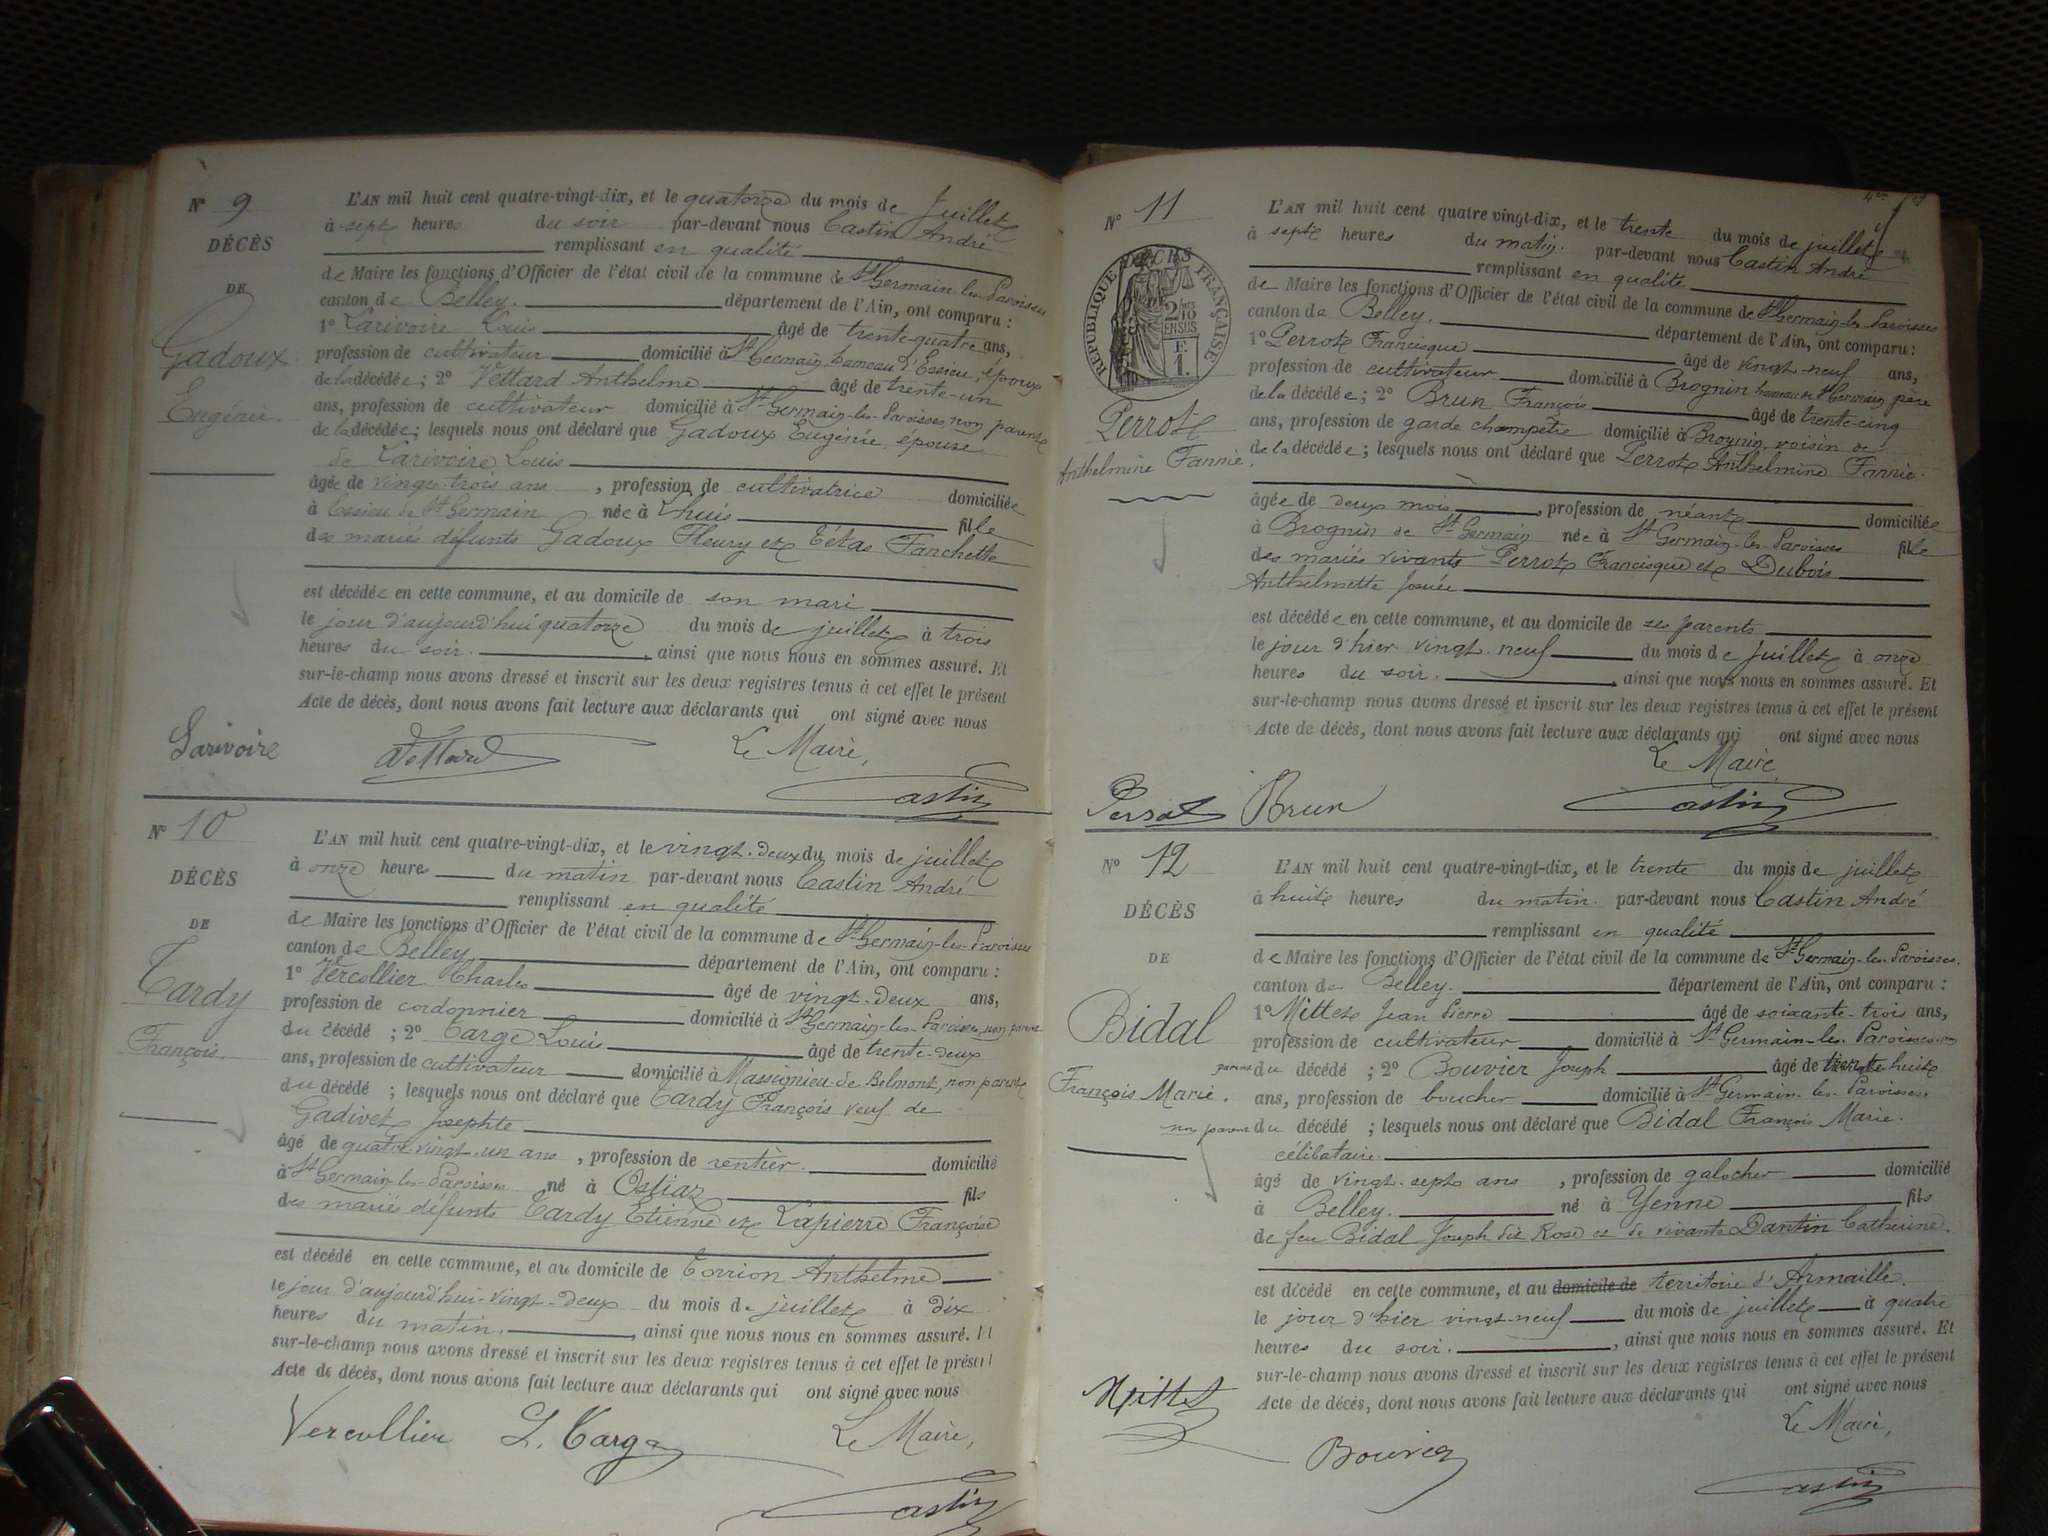 N° 9
DÉCÈS
DE
Gadoux
Eugénie.
L'AN mil huit cent quatre-vingt-dix, et le quatorze du mois de Juillet
à sept heures du soir par-devant nous Castin André
remplissant en qualité
de Maire les fonctions d'Officier de l'état civil de la commune de St Germain-les-Paroisses
canton de Belley. département de l'Ain, ont comparu :
1° Larivoire Louis âgé de trente-quatre ans,
profession de cultivateur domicilié à St Germain hameau d'Essieu, époux
de la décédée ; 2° Vettard Anthelme âgé de trente-un
ans, profession de cultivateur domicilié à St Germain-les-Paroisses, non parent
de la décédée ; lesquels nous ont déclaré que Gadoux Eugénie, épouse
de Larivoire Louis
âgée de vingt-trois ans , profession de cultivatrice domiciliée
à Essieu de St Germain née à Lhuis fille
des mariés défunts Gadoux Fleury et Tétaz Fanchette
est décédée en cette commune, et au domicile de son mari
le jour d'aujourd'hui quatorze du mois de juillet à trois
heures du soir. , ainsi que nous nous en sommes assuré. Et
sur-le-champ nous avons dressé et inscrit sur les deux registres tenus à cet effet le présent
Acte de décès, dont nous avons fait lecture aux déclarants qui ont signé avec nous
Larivoire Vettard Le Maire,
Castin
N° 10
DÉCÈS
DE
Tardy
François
L'AN mil huit cent quatre-vingt-dix, et le vingt-deux du mois de juillet
à onze heures du matin par-devant nous Castin André
remplissant en qualité
de Maire les fonctions d'Officier de l'état civil de la commune de St Germain-les-Paroisses
canton de Belley département de l'Ain, ont comparu :
1° Vercollier Charles âgé de vingt-deux ans,
profession de cordonnier domicilié à St Germain-les-Paroisses, non parent
du décédé ; 2° Targe Louis âgé de trente-deux
ans, profession de cultivateur domicilié à Massignieu-de-Belmont, non parent
du décédé ; lesquels nous ont déclaré que Tardy François veuf de
Gadivet Josephte
âgé de quatre-vingt-un ans , profession de rentier. domicilié
à St Germain-les-Paroisses né à Ostiaz fils
des mariés défunts Tardy Etienne et Lapierre Françoise
est décédé en cette commune, et au domicile de Torrion Anthelme
le jour d'aujourd'hui vingt-deux du mois de juillet à dix
heures du matin. , ainsi que nous nous en sommes assuré. Et
sur-le-champ nous avons dressé et inscrit sur les deux registres tenus à cet effet le présent
Acte de décès, dont nous avons fait lecture aux déclarants qui ont signé avec nous
Vercollier L. Targe Le Maire,
Castin
N° 11
RÉPUBLIQUE FRANÇAISE
DÉCÈS
2/10
EN SUS
F.
1.
Perrot
Anthelmine Fannie.
L'AN mil huit cent quatre vingt-dix, et le trente du mois de juillet
à sept heures du matin. par-devant nous Castin André
remplissant en qualité
de Maire les fonctions d'Officier de l'état civil de la commune de St Germain-les-Paroisses
canton de Belley. département de l'Ain, ont comparu :
1° Perrot Francisque âgé de vingt-neuf ans,
profession de cultivateur domicilié à Brognin hameau de St Germain père
de la décédée ; 2° Brun François âgé de trente-cinq
ans, profession de garde champêtre domicilié à Brognin, voisin de
de la décédée ; lesquels nous ont déclaré que Perrot Anthelmine Fannie.
âgée de deux mois , profession de néant domiciliée
à Brognin de St Germain née à St Germain-les-Paroisses fille
des mariés vivants Perrot Francisque et Dubois
Anthelmette Josuée
est décédée en cette commune, et au domicile de ses parents
le jour d'hier vingt-neuf du mois de juillet à onze
heures du soir. , ainsi que nous nous en sommes assuré. Et
sur-le-champ nous avons dressé et inscrit sur les deux registres tenus à cet effet le présent
Acte de décès, dont nous avons fait lecture aux déclarants qui ont signé avec nous
Le Maire,
Perrot Brun Castin
N° 12
DÉCÈS
DE
Bidal
François Marie.
L'AN mil huit cent quatre-vingt-dix, et le trente du mois de juillet
à huit heures du matin. par-devant nous Castin André
remplissant en qualité
de Maire les fonctions d'Officier de l'état civil de la commune de St Germain-les-Paroisses.
canton de Belley. département de l'Ain, ont comparu :
1° Mittet Jean Pierre âgé de soixante-trois ans,
profession de cultivateur domicilié à St Germain-les-Paroisses non
parent du décédé ; 2° Bouvier Joseph âgé de trente huit
ans, profession de boucher domicilié à St Germain-les-Paroisses
non parent du décédé ; lesquels nous ont déclaré que Bidal François Marie.
célibataire.
âgé de vingt-sept ans , profession de galocher domicilié
à Belley. né à Yenne fils
de feu Bidal Joseph dit Rose et de vivante Dantin Catherine.
est décédé en cette commune, et au domicile de territoire d'Armaille.
le jour d'hier vingt-neuf du mois de juillet à quatre
heures du soir. , ainsi que nous nous en sommes assuré. Et
sur-le-champ nous avons dressé et inscrit sur les deux registres tenus à cet effet le présent
Acte de décès, dont nous avons fait lecture aux déclarants qui ont signé avec nous
Le Maire,
Mittet
Bouvier
Castin